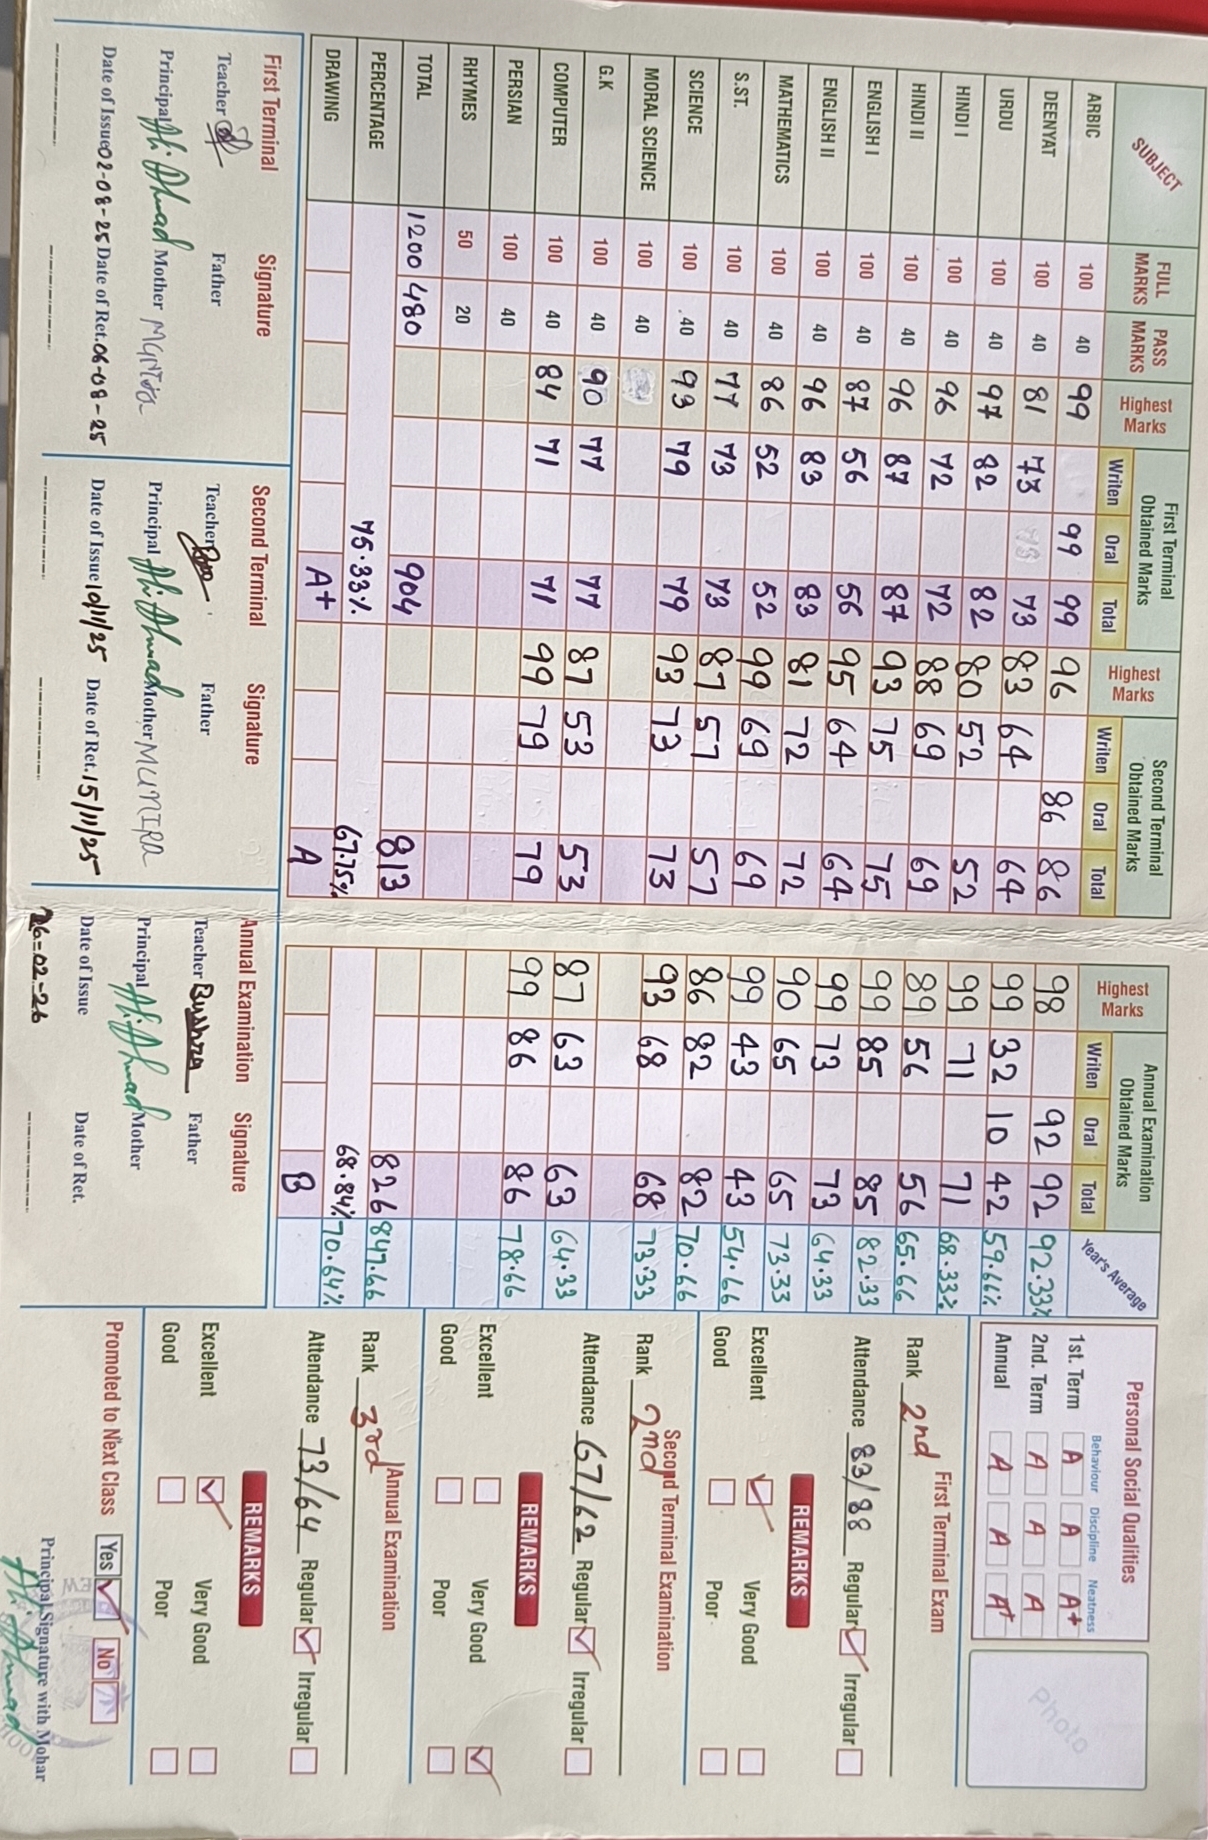 SUBJECT FULL MARKS PASS MARKS Highest Marks First Terminal Obtained Marks Writen Oral Total Highest Marks Second Terminal Obtained Marks Writen Oral Total Highest Marks Annual Examination Obtained Marks Writen Oral Total Year's Average
ARBIC 100 40 99 99 99 96 86 86 98 92 92 92.33%
DEENYAT 100 40 81 73 73 83 64 64 99 32 10 42 59.66%
URDU 100 40 97 82 82 80 52 52 99 71 71 68.33%
HINDI I 100 40 96 72 72 88 69 69 89 56 56 65.66
HINDI II 100 40 96 87 87 93 75 75 99 85 85 82.33
ENGLISH I 100 40 87 56 56 95 64 64 99 73 73 64.33
ENGLISH II 100 40 96 83 83 81 72 72 90 65 65 73.33
MATHEMATICS 100 40 86 52 52 99 69 69 99 43 43 54.66
S.ST. 100 40 77 73 73 87 57 57 86 82 82 70.66
SCIENCE 100 40 93 79 79 93 73 73 93 68 68 73.33
MORAL SCIENCE 100 40
G.K 100 40 90 77 77 87 53 53 87 63 63 64.33
COMPUTER 100 40 84 71 71 99 79 79 99 86 86 78.66
PERSIAN 100 40
RHYMES 50 20
TOTAL 1200 480 904 813 826 847.66
PERCENTAGE 75.33% 67.75% 68.84% 70.64%
DRAWING A+ A B
First Terminal Signature
Teacher Father
Principal Ali Ahmad Mother
Date of Issue 02-08-25 Date of Ret. 06-08-25
Second Terminal Signature
Teacher Father
Principal Ali Ahmad Mother MUNIRA
Date of Issue 10/11/25 Date of Ret. 15/11/25
Annual Examination Signature
Teacher Bushra Father
Principal Ali Ahmad Mother
Date of Issue Date of Ret.
26-02-26
Personal Social Qualities
Behaviour Discipline Neatness
1st. Term A A A+
2nd. Term A A A
Annual A A A+
Photo
First Terminal Exam
Rank 2nd
Attendance 83/88 Regular Irregular
REMARKS
Excellent Very Good
Good Poor
Second Terminal Examination
Rank 2nd
Attendance 67/62 Regular Irregular
REMARKS
Excellent Very Good
Good Poor
Annual Examination
Rank 3rd
Attendance 73/64 Regular Irregular
REMARKS
Excellent Very Good
Good Poor
Promoted to Next Class Yes No
Principal Signature with Mohar
Ali Ahmad